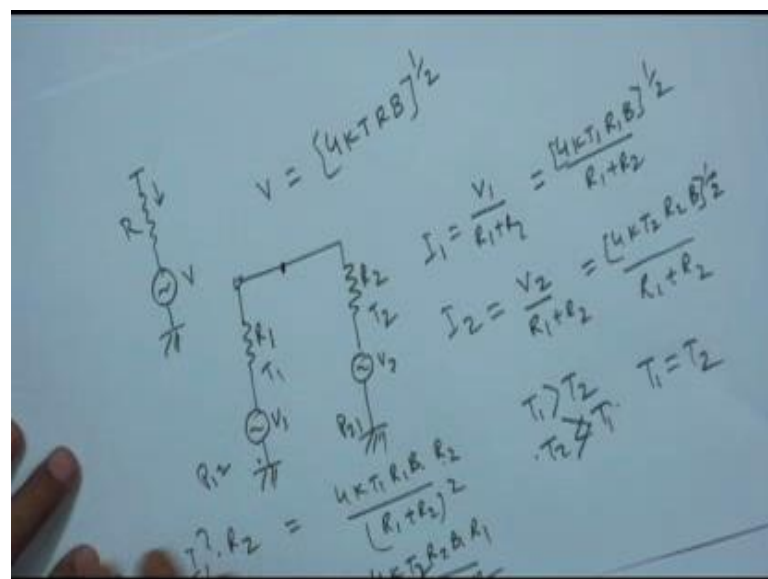 V = [4KTRB]^1/2
T
R
V
I1 = V1 / R1+R2 = [4KT1R1B]^1/2 / R1+R2
I2 = V2 / R1+R2 = [4KT2R2B]^1/2 / R1+R2
R1
T1
V1
P12
R2
T2
V2
P21
T1 > T2
T2 > T1
T1 = T2
I1^2 . R2 = 4KT1R1B. R2 / (R1+R2)^2
4KT2R2B.R1